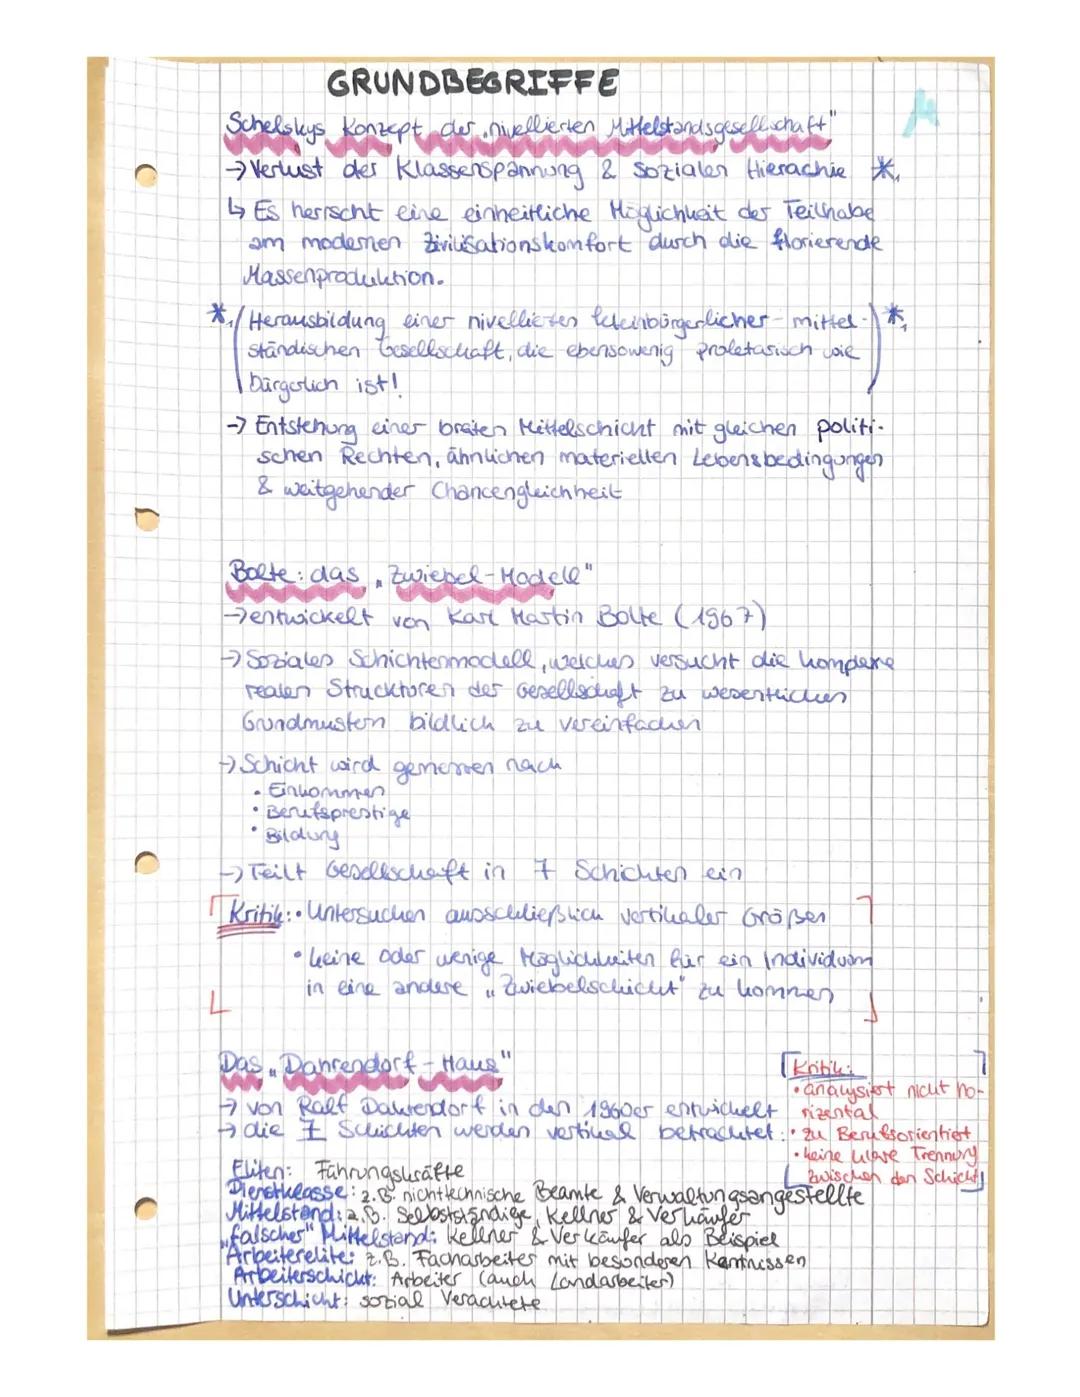 GRUNDBEGRIFFE
Schelskys Konzept der „nivellierten Mittelstandsgesellschaft"
→ Verlust der Klassenspannung & sozialen Hierachie *1
↳ Es herrscht eine einheitliche Möglichkeit der Teilhabe
am modernen Zivilisationskomfort durch die florierende
Massenproduktion.
*1 (Herausbildung einer nivellierten kleinbürgerlicher-mittel- ) *1
ständischen Gesellschaft, die ebensowenig proletarisch wie
bürgerlich ist!
→ Entstehung einer breiten Mittelschicht mit gleichen politi-
schen Rechten, ähnlichen materiellen Lebensbedingungen
& weitgehender Chancengleichheit
Bolte: das „Zwiebel-Modell"
→ entwickelt von Karl Martin Bolte (1967)
→ Soziales Schichtenmodell, welches versucht die komplexe
realen Strucktoren der Gesellschaft zu wesentlichen
Grundmustern bildlich zu vereinfachen
→ Schicht wird gemessen nach
• Einkommen
• Berufsprestige
• Bildung
→ Teilt Gesellschaft in 7 Schichten ein
Kritik: • Untersuchen ausschließlich vertikaler Größen
• keine oder wenige Möglichkeiten für ein Individuum
in eine andere „Zwiebelschicht" zu kommen
Das „Dahrendorf-Haus"
→ von Ralf Dahrendorf in den 1960er entwickelt
→ die 7 Schichten werden vertikal betrachtet:
Kritik:
• analysiert nicht ho-
rizental
• zu Berufsorientiert
• keine klare Trennung
zwischen den Schicht
Eliten: Führungskräfte
Dienstklasse: z.B. nichttechnische Beamte & Verwaltungsangestellte
Mittelstand: z.B. Selbstständige, Kellner & Verkäufer
„falscher" Mittelstand: Kellner & Verkäufer als Beispiel
Arbeiterelite: z.B. Facharbeiter mit besonderen Kentnissen
Arbeiterschicht: Arbeiter (auch Landarbeiter)
Unterschicht: sozial Verachtete